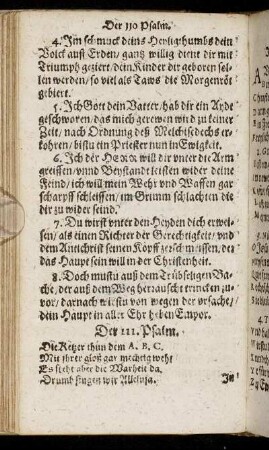 Der 110 Psalm.
4. Im schmuck deins Heyligthumbs dein
Volck auß Erden / gantz willig dient dir mit
Triumph geziert, dein Kinder dir geboren sol-
len werden / so viel als Taws die Morgenröt
gebiert.
5. Ich Gott dein Vatter / hab dir ein Ayde
geschworen / das mich gerewen wird zu keiner
Zeit / nach Ordnung deß Melchisedechs er-
kohren / bistu ein Priester nun in Ewigkeit.
6. Ich der HERR will dir vnter die Arm
greiffen / vnnd Beystandt leisten wider deine
Feind / ich will mein Wehr vnd Waffen gar
scharpff schleiffen / im Grimm schlachten die
dir zu wider seind.
7. Du wirst vnter den Heyden dich erwei-
sen / als einen Richter der Gerechtigkeit / vnd
dem Antichrist seinen Kopff zerschmeissen, der
das Haupt sein will in der Christenheit.
8. Doch mustu auß dem Trübseligen Ba-
che, der auß dem Weg herrauscht trincken zu-
vor / darnach wirstu von wegen der vrsache /
dein Haupt in aller Ehr heben Empor.
Der 111. Psalm.
Die Ketzer thun dem A. B. C.
Mit ihrer gloß gar mechtig weh /
Es steht aber die Warheit da.
Drumb singen wir Alleluja.
In